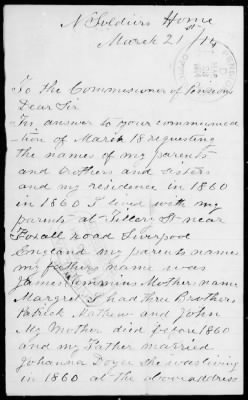 N Soldiers Home
March 21st/14
To the Commissioner of Pensions
Dear Sir
In answer to your communica
tion of March 18 requesting
the names of my parents
and Brothers and Sisters
and my residence in 1860
in 1860 I lived with my
parents at Tillery St near
Foxall road Liverpool
England my parents names
my fathers name was
James Timmins Mother name
Margret I had three Brothers
Patrick Mathew and John
My Mother died before 1860
and my Father married
Johanna Doyer she was living
in 1860 at the above address